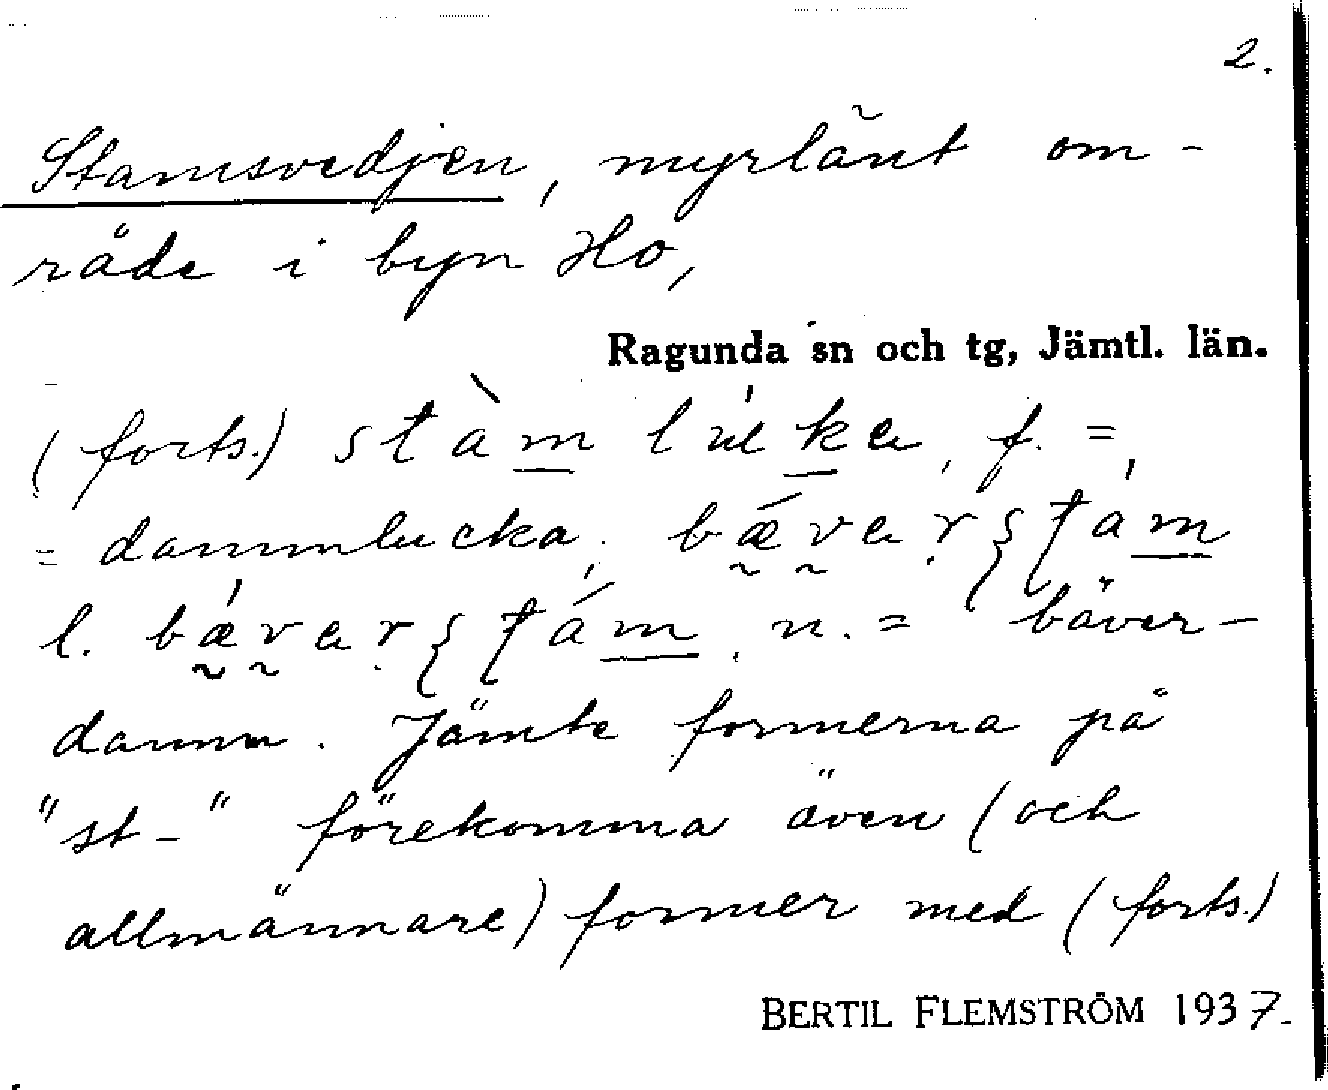 2.
Stamsvedjen, myrlänt om-
råde i byn Ho,
Ragunda sn och tg, Jämtl. län.
(forts.) stàm luka, f. =
= dammlucka;
l. n. = bäver-
damm. Jämte formerna på
"st-" förekomma även (och
allmännare) former med (forts.)
BERTIL FLEMSTRÖM 1937.